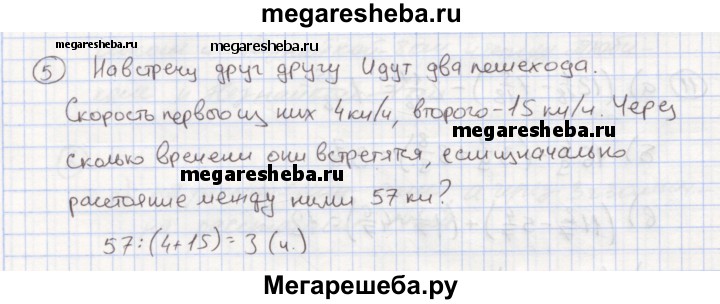 megaresheba.ru
megaresheba.ru megaresheba.ru
5 Навстречу друг другу идут два пешехода.
Скорость первого из них 4 км/ч, второго - 15 км/ч. Через
megaresheba.ru
сколько времени они встретятся, если изначально
расстояние между ними 57 км?
57:(4+15)=3 (ч.)
Мегарешеба.ру